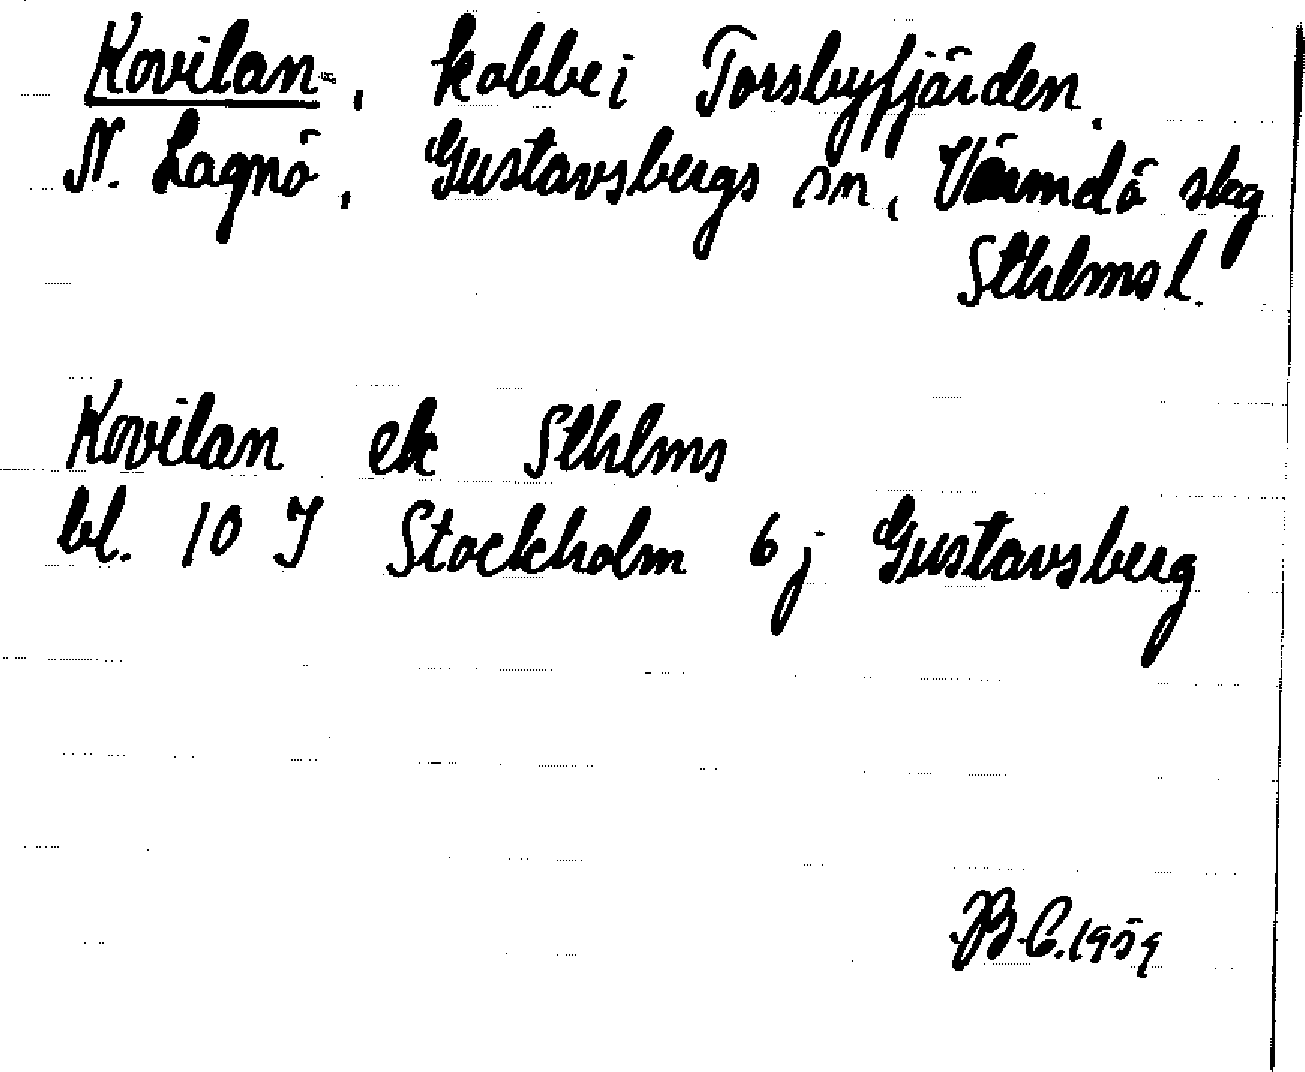 Kovilan, kobbe i Torsbyfjärden.
N. Lagnö, Gustavsbergs sn, Värmdö slg
Sthlms l.
Kovilan ek Sthlms
bl. 10 I Stockholm 6 j Gustavsberg
B.C. 1959